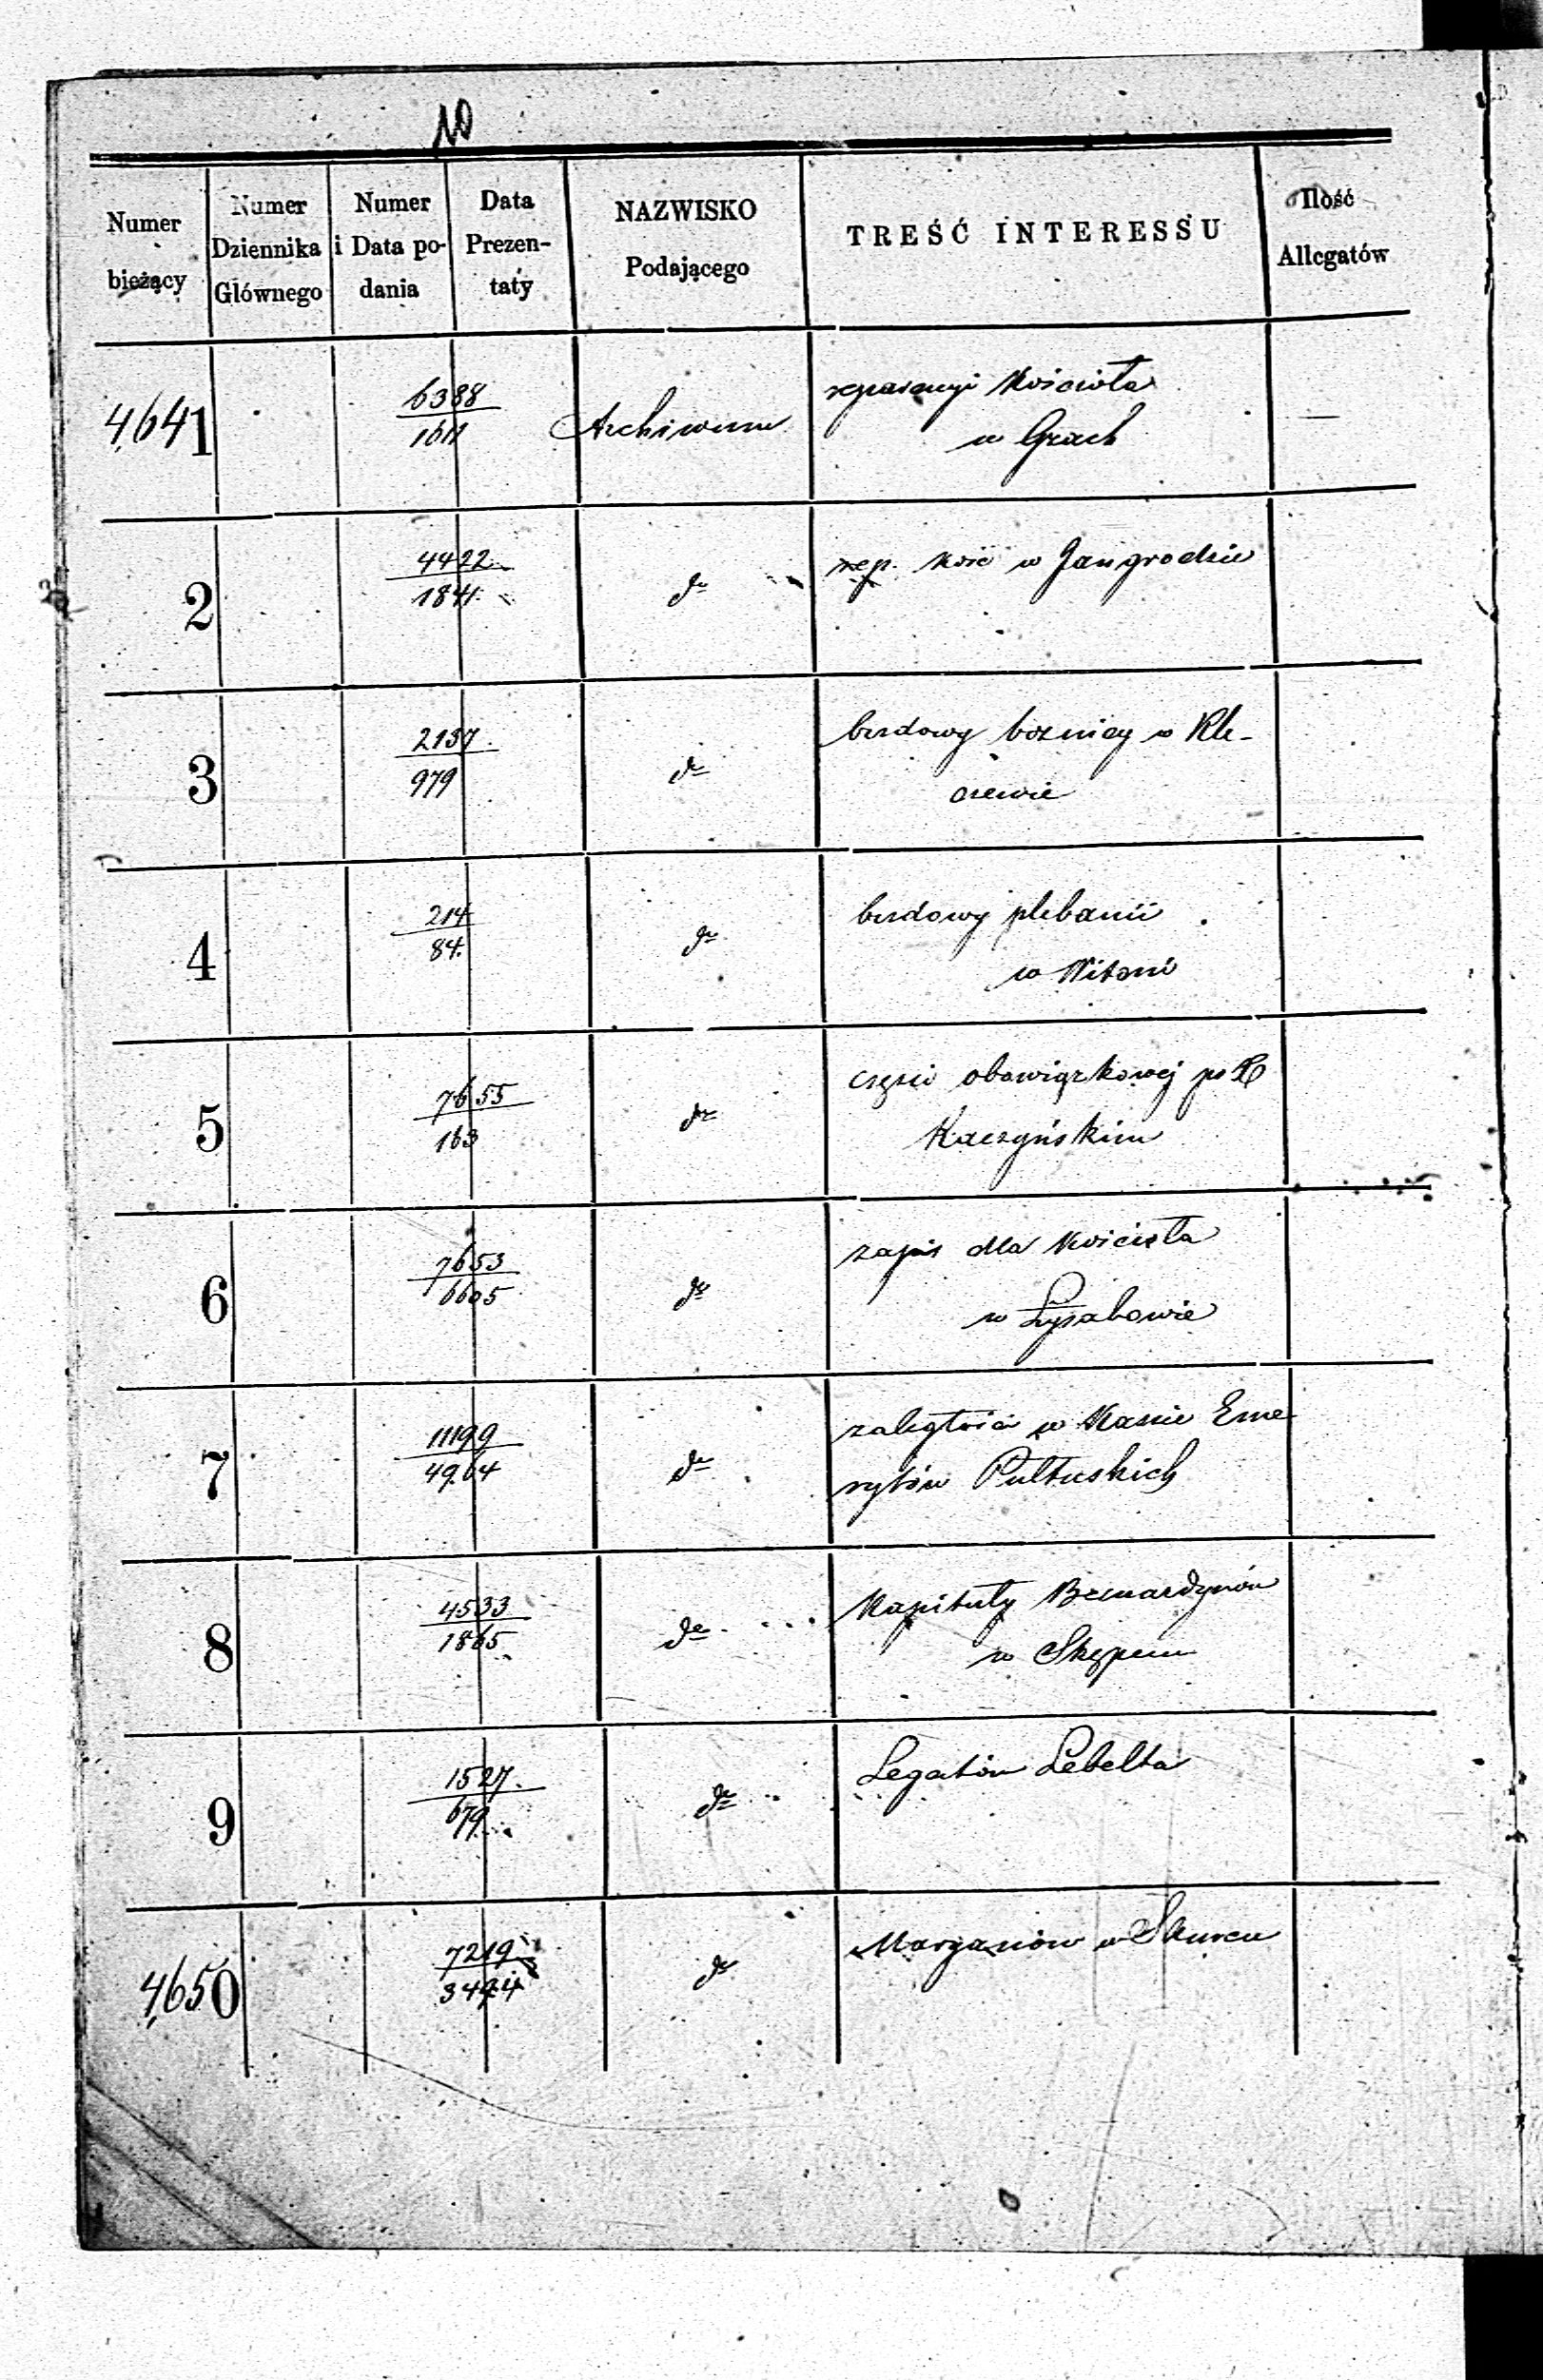 10
Numer bieżący
Numer Dziennika Głównego
Numer i Data podania
Data Prezentaty
NAZWISKO Podającego
TREŚĆ INTERESSU
Ilość Allegatów
4641 6388/1611 Archiwum reparacyi kościoła
w Grach
2 4422/1841 do rep. kośc w Jangrodzie
3 2137/979 do budowy boznicy w Kle-
czewie
4 214/84. do budowy plebanii
w Witoni
5 7655/163 do części obowiązkowej po X
Kaczyńskim
6 7653/6605 do zapis dla kościoła
w Łyszkowie
7 11199/4964 do zaległości w Kassie Eme
rytów Pułtuskich
8 4533/1865 do Kapituły Bernardynów
w Skępem
9 1527/679 do Legatów Lebelta
4650 7219/3494 do Maryanów w Skurcu